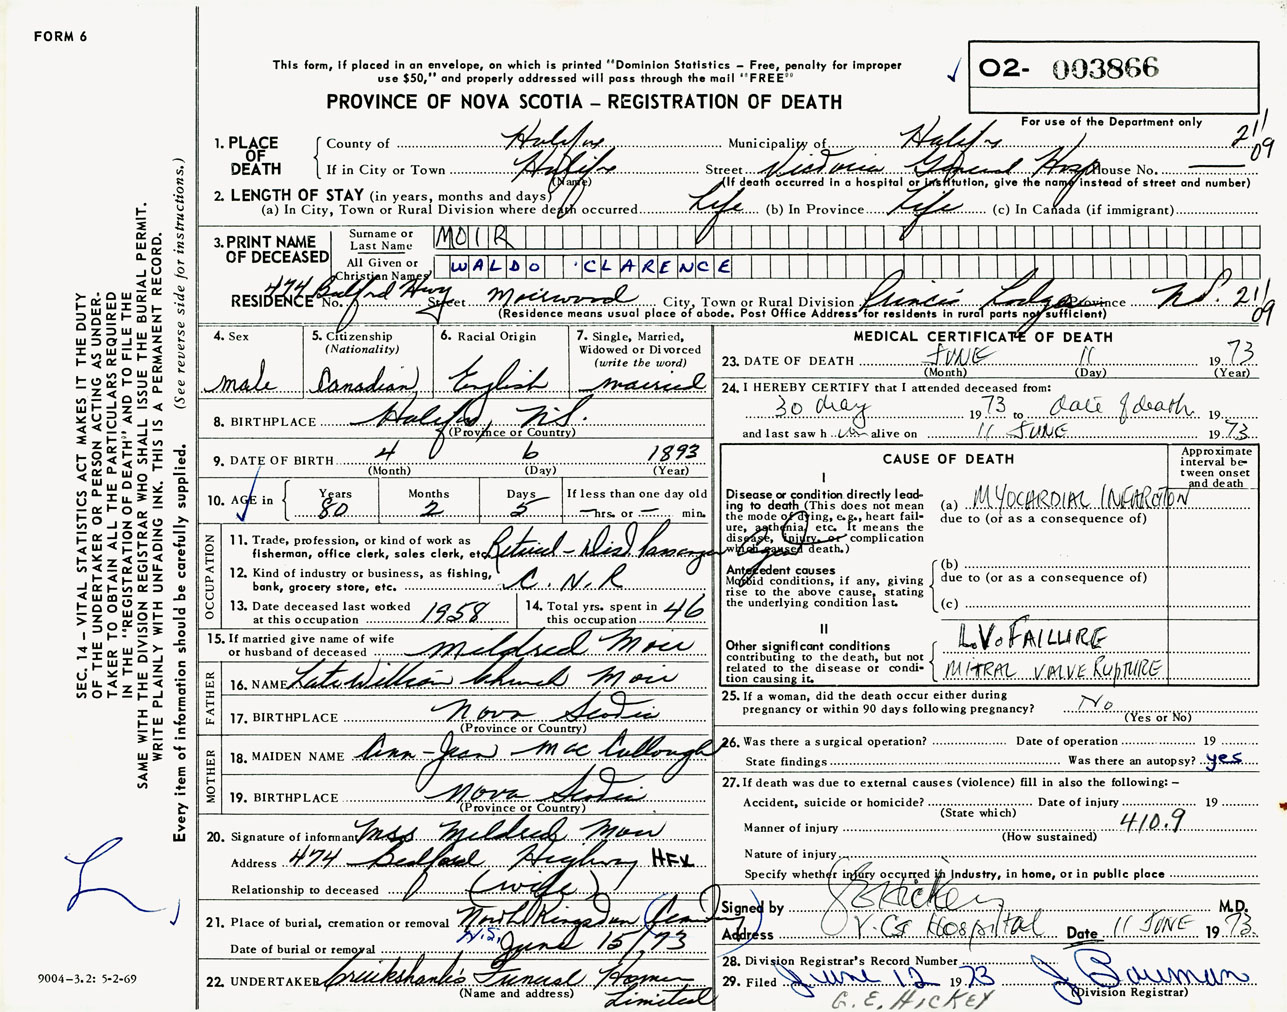 FORM 6
This form, if placed in an envelope, on which is printed "Dominion Statistics – Free, penalty for improper
use $50," and properly addressed will pass through the mail "FREE"
O2- 003866
PROVINCE OF NOVA SCOTIA – REGISTRATION OF DEATH
For use of the Department only
1. PLACE OF DEATH
County of Halifax Municipality of Halifax 211
09
If in City or Town Halifax Street Victoria General Hosp House No. —
(Name) (If death occurred in a hospital or institution, give the name instead of street and number)
2. LENGTH OF STAY (in years, months and days)
(a) In City, Town or Rural Division where death occurred Life (b) In Province Life (c) In Canada (if immigrant)
3. PRINT NAME OF DECEASED
Surname or Last Name MOIR
All Given or Christian Names WALDO CLARENCE
RESIDENCE No. 474 Bedford Hwy Street Moirwood City, Town or Rural Division Princes Lodge Province N.S. 211
09
(Residence means usual place of abode. Post Office Address for residents in rural parts not sufficient)
4. Sex male
5. Citizenship (Nationality) Canadian
6. Racial Origin English
7. Single, Married, Widowed or Divorced (write the word) married
8. BIRTHPLACE Halifax, N.S.
(Province or Country)
9. DATE OF BIRTH 4 6 1893
(Month) (Day) (Year)
10. AGE in Years 80 Months 2 Days 5 If less than one day old — hrs. or — min.
OCCUPATION
11. Trade, profession, or kind of work as fisherman, office clerk, sales clerk, etc. Retired – Dist. Passenger Agent
12. Kind of industry or business, as fishing, bank, grocery store, etc. C.N.R
13. Date deceased last worked at this occupation 1958
14. Total yrs. spent in this occupation 46
15. If married give name of wife or husband of deceased Mildred Moir
FATHER
16. NAME Late William Church Moir
17. BIRTHPLACE Nova Scotia
(Province or Country)
MOTHER
18. MAIDEN NAME Ann-Jean MacCullough
19. BIRTHPLACE Nova Scotia
(Province or Country)
20. Signature of informant Mrs Mildred Moir
Address 474 Bedford Highway HFX
Relationship to deceased (wife)
21. Place of burial, cremation or removal North Kingston N.S.
Date of burial or removal June 15/73
22. UNDERTAKER Cruikshank's Funeral Home Limited
(Name and address)
MEDICAL CERTIFICATE OF DEATH
23. DATE OF DEATH JUNE 11 1973
(Month) (Day) (Year)
24. I HEREBY CERTIFY that I attended deceased from:
30 May 1973 to date of death 19
and last saw him alive on 11 JUNE 1973
CAUSE OF DEATH
Approximate interval between onset and death
I
Disease or condition directly leading to death (This does not mean the mode of dying, e.g., heart failure, asthenia, etc. It means the disease, injury, or complication which caused death.)
(a) MYOCARDIAL INFARCTION
due to (or as a consequence of)
Antecedent causes
Morbid conditions, if any, giving rise to the above cause, stating the underlying condition last.
(b)
due to (or as a consequence of)
(c)
II
Other significant conditions contributing to the death, but not related to the disease or condition causing it.
L.V. FAILURE
MITRAL VALVE RUPTURE
25. If a woman, did the death occur either during pregnancy or within 90 days following pregnancy? No
(Yes or No)
26. Was there a surgical operation? Date of operation 19
State findings Was there an autopsy? yes
27. If death was due to external causes (violence) fill in also the following: –
Accident, suicide or homicide? Date of injury 19
(State which)
Manner of injury 410.9
(How sustained)
Nature of injury
Specify whether injury occurred in Industry, in home, or in public place
Signed by G E Hickey M.D.
Address V.G. Hospital Date 11 JUNE 1973
28. Division Registrar's Record Number
29. Filed June 12 1973 J Bauman
(Division Registrar)
G. E. HICKEY
SEC. 14 – VITAL STATISTICS ACT MAKES IT THE DUTY
OF THE UNDERTAKER OR PERSON ACTING AS UNDER-
TAKER TO OBTAIN ALL THE PARTICULARS REQUIRED
IN THE "REGISTRATION OF DEATH" AND TO FILE THE
SAME WITH THE DIVISION REGISTRAR WHO SHALL ISSUE THE BURIAL PERMIT.
WRITE PLAINLY WITH UNFADING INK. THIS IS A PERMANENT RECORD.
Every item of information should be carefully supplied. (See reverse side for instructions.)
9004-3.2: 5-2-69